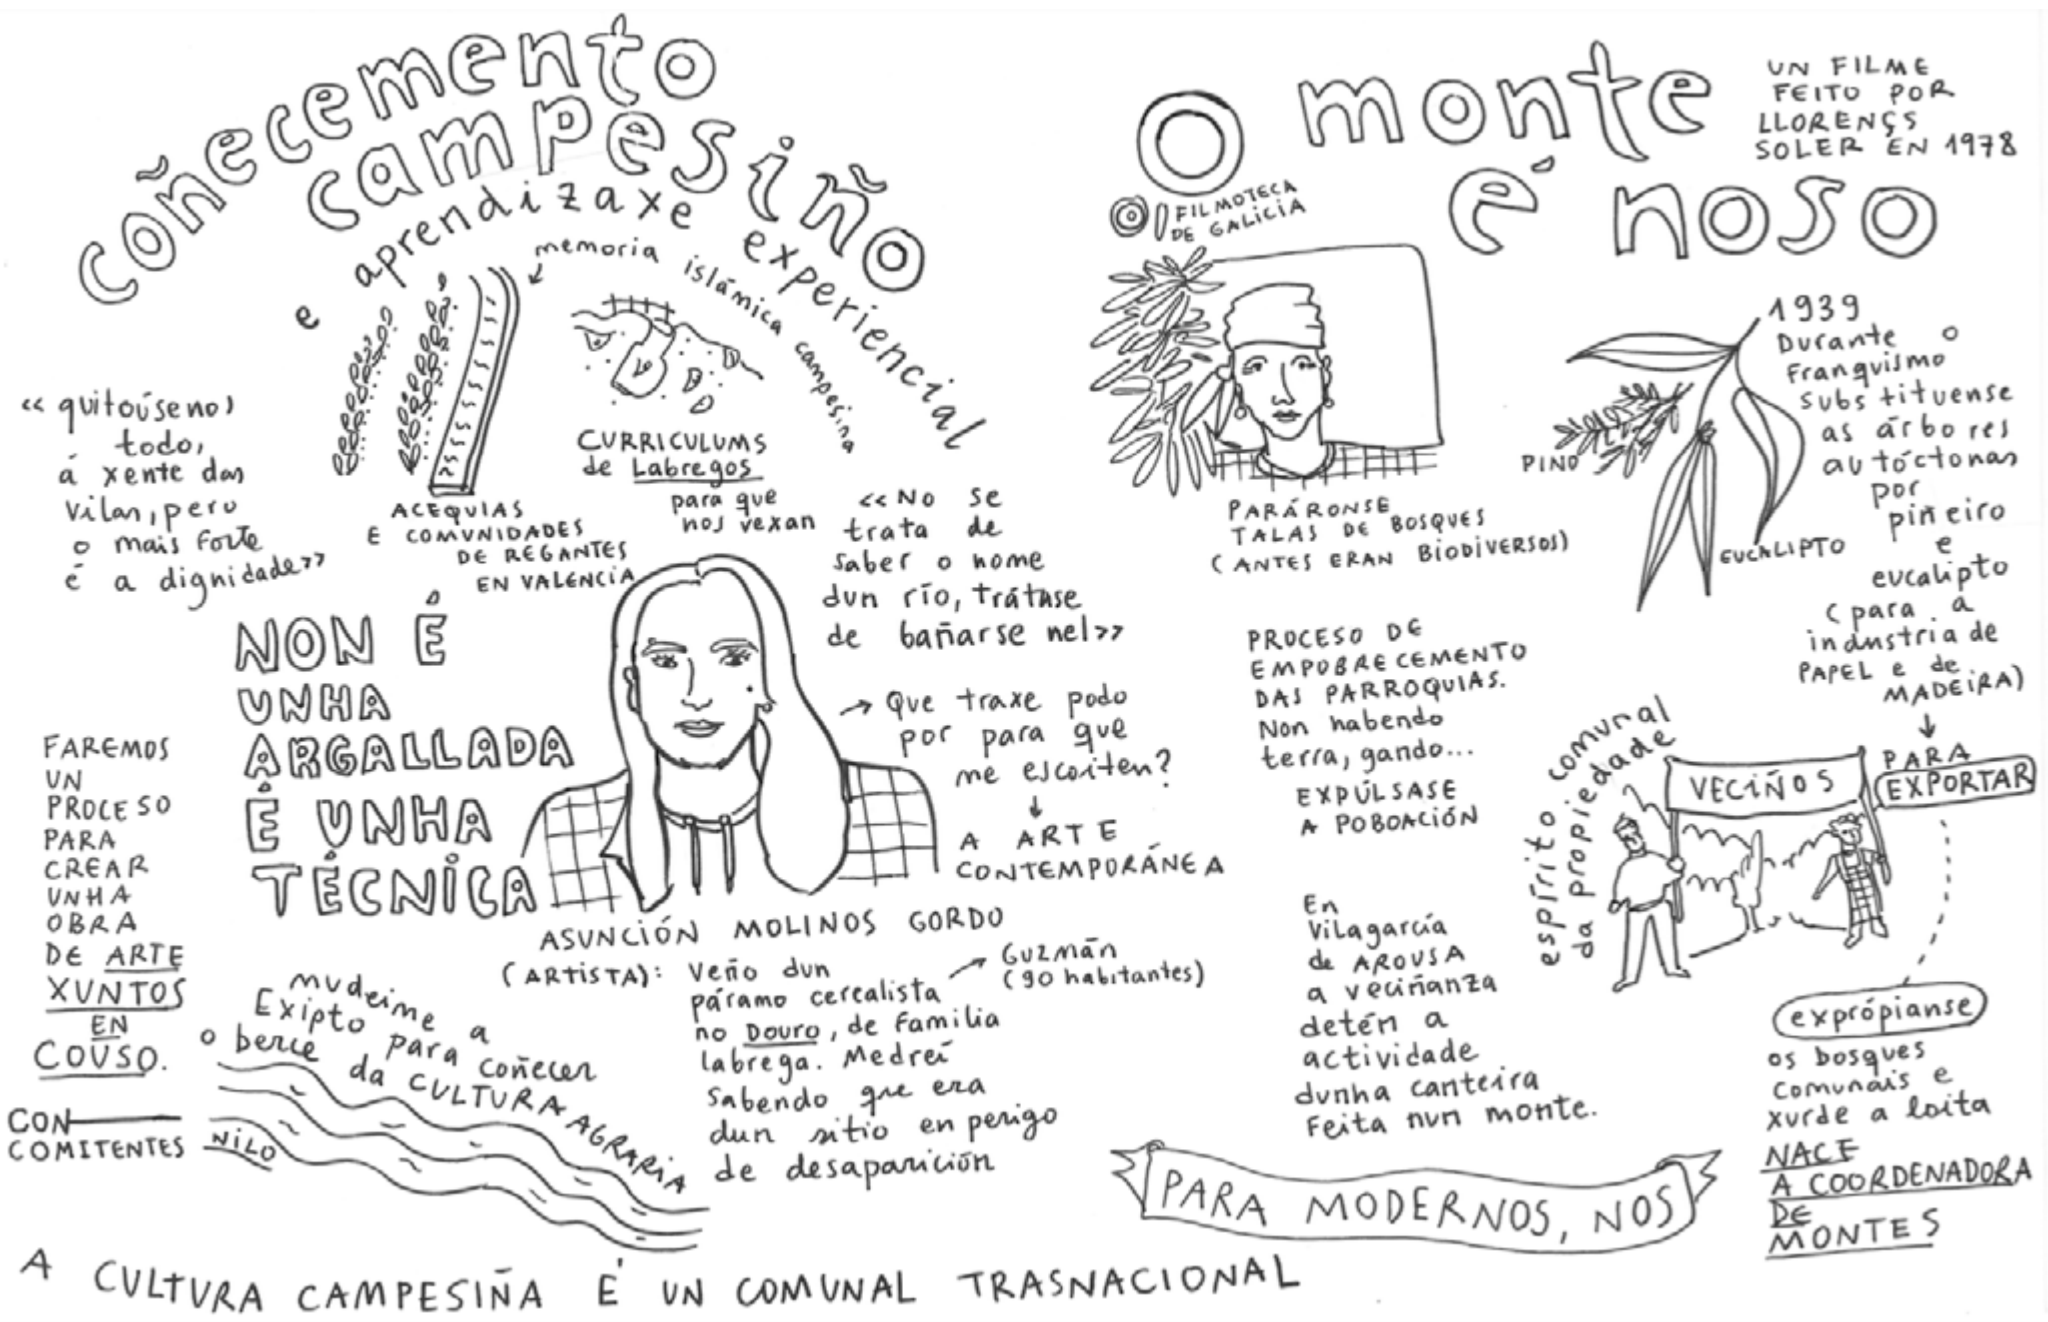 coñecemento
campesiño
e aprendizaxe experiencial
memoria islámica campesina
«quitóusenos
todo,
á xente das
vilas, pero
o mais forte
é a dignidade»
ACEQUIAS
E COMUNIDADES
DE REGANTES
EN VALENCIA
CURRICULUMS
de Labregos
para que
nos vexan
«No se
trata de
saber o nome
dun río, trátase
de bañarse nel»
NON É
UNHA
ARGALLADA
É UNHA
TÉCNICA
→ Que traxe podo
por para que
me escoiten?
↓
A ARTE
CONTEMPORÁNEA
FAREMOS
UN
PROCESO
PARA
CREAR
UNHA
OBRA
DE ARTE
XUNTOS
EN
COUSO.
CON
COMITENTES
ASUNCIÓN MOLINOS GORDO
(ARTISTA): Veño dun
páramo cerealista
no DOURO, de familia
labrega. Medrei
sabendo que era
dun sitio en perigo
de desaparición
→ Guzmán
(90 habitantes)
mudeime a
Exipto para coñecer
o berce da CULTURA AGRARIA
NILO
A CULTURA CAMPESIÑA É UN COMUNAL TRASNACIONAL
O monte
é noso
UN FILME
FEITO POR
LLORENÇS
SOLER EN 1978
FILMOTECA
DE GALICIA
PARÁRONSE
TALAS DE BOSQUES
(ANTES ERAN BIODIVERSOS)
PINO
EUCALIPTO
1939
Durante o
Franquismo
substituense
as árbores
autóctonas
por
piñeiro
e
eucalipto
(para a
industria de
PAPEL e de
MADEIRA)
↓
PARA
EXPORTAR
PROCESO DE
EMPOBRECEMENTO
DAS PARROQUIAS.
Non habendo
terra, gando...
EXPÚLSASE
A POBOACIÓN
espírito comunal
da propiedade
VECIÑOS
En
Vilagarcía
de AROUSA
a veciñanza
detén a
actividade
dunha canteira
feita nun monte.
exprópianse
os bosques
comunais e
xurde a loita
NACE
A COORDENADORA
DE
MONTES
PARA MODERNOS, NOS